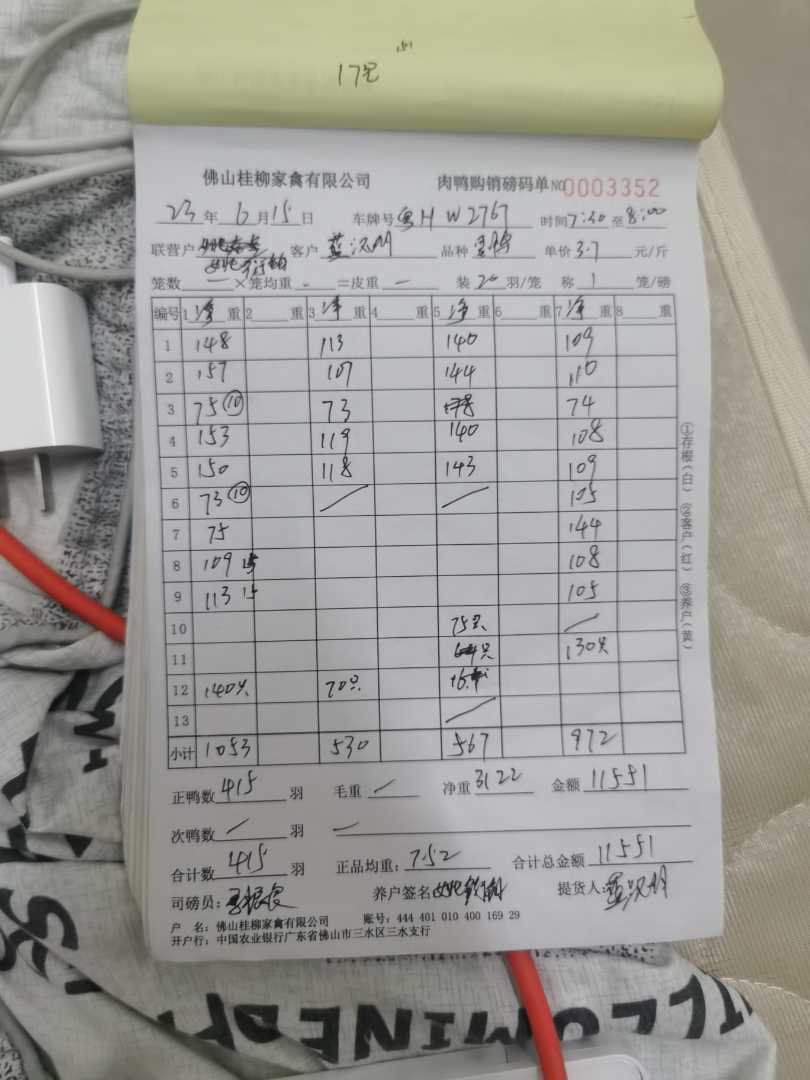 17只
佛山桂柳家禽有限公司 肉鸭购销磅码单 NO 0003352
23年6月15日 车牌号粤H W2767 时间7:30至8:00
联营户 客户 蓝汉明 品种 单价3.7元/斤
笼数 一 ×笼均重 - =皮重 - 装20羽/笼 称1笼/磅
编号 1净重 2重 3净重 4重 5净重 6重 7净重 8重
1 148 113 140 109
2 157 107 144 110
3 75⑩ 73 74
4 153 119 140 108
5 150 118 143 109
6 73⑩ / / 105
7 75 144
8 109 15 108
9 113 15 105
10 75只 /
11 130只
12 140只 70只
13 /
小计 1053 530 567 972
正鸭数415羽 毛重 / 净重3122 金额11551
次鸭数 / 羽 一
合计数415羽 正品均重:7.52 合计总金额11551
司磅员: 养户签名 提货人:蓝汉明
户 名:佛山桂柳家禽有限公司 账号:444 401 010 400 169 29
开户行:中国农业银行广东省佛山市三水区三水支行
①存根(白) ②客户(红) ③养户(黄)